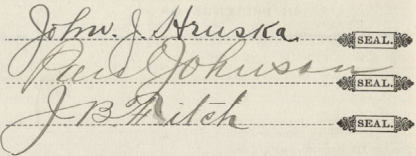 John. J. Hruska SEAL.
Pars Johnson SEAL.
J B Fitch SEAL.